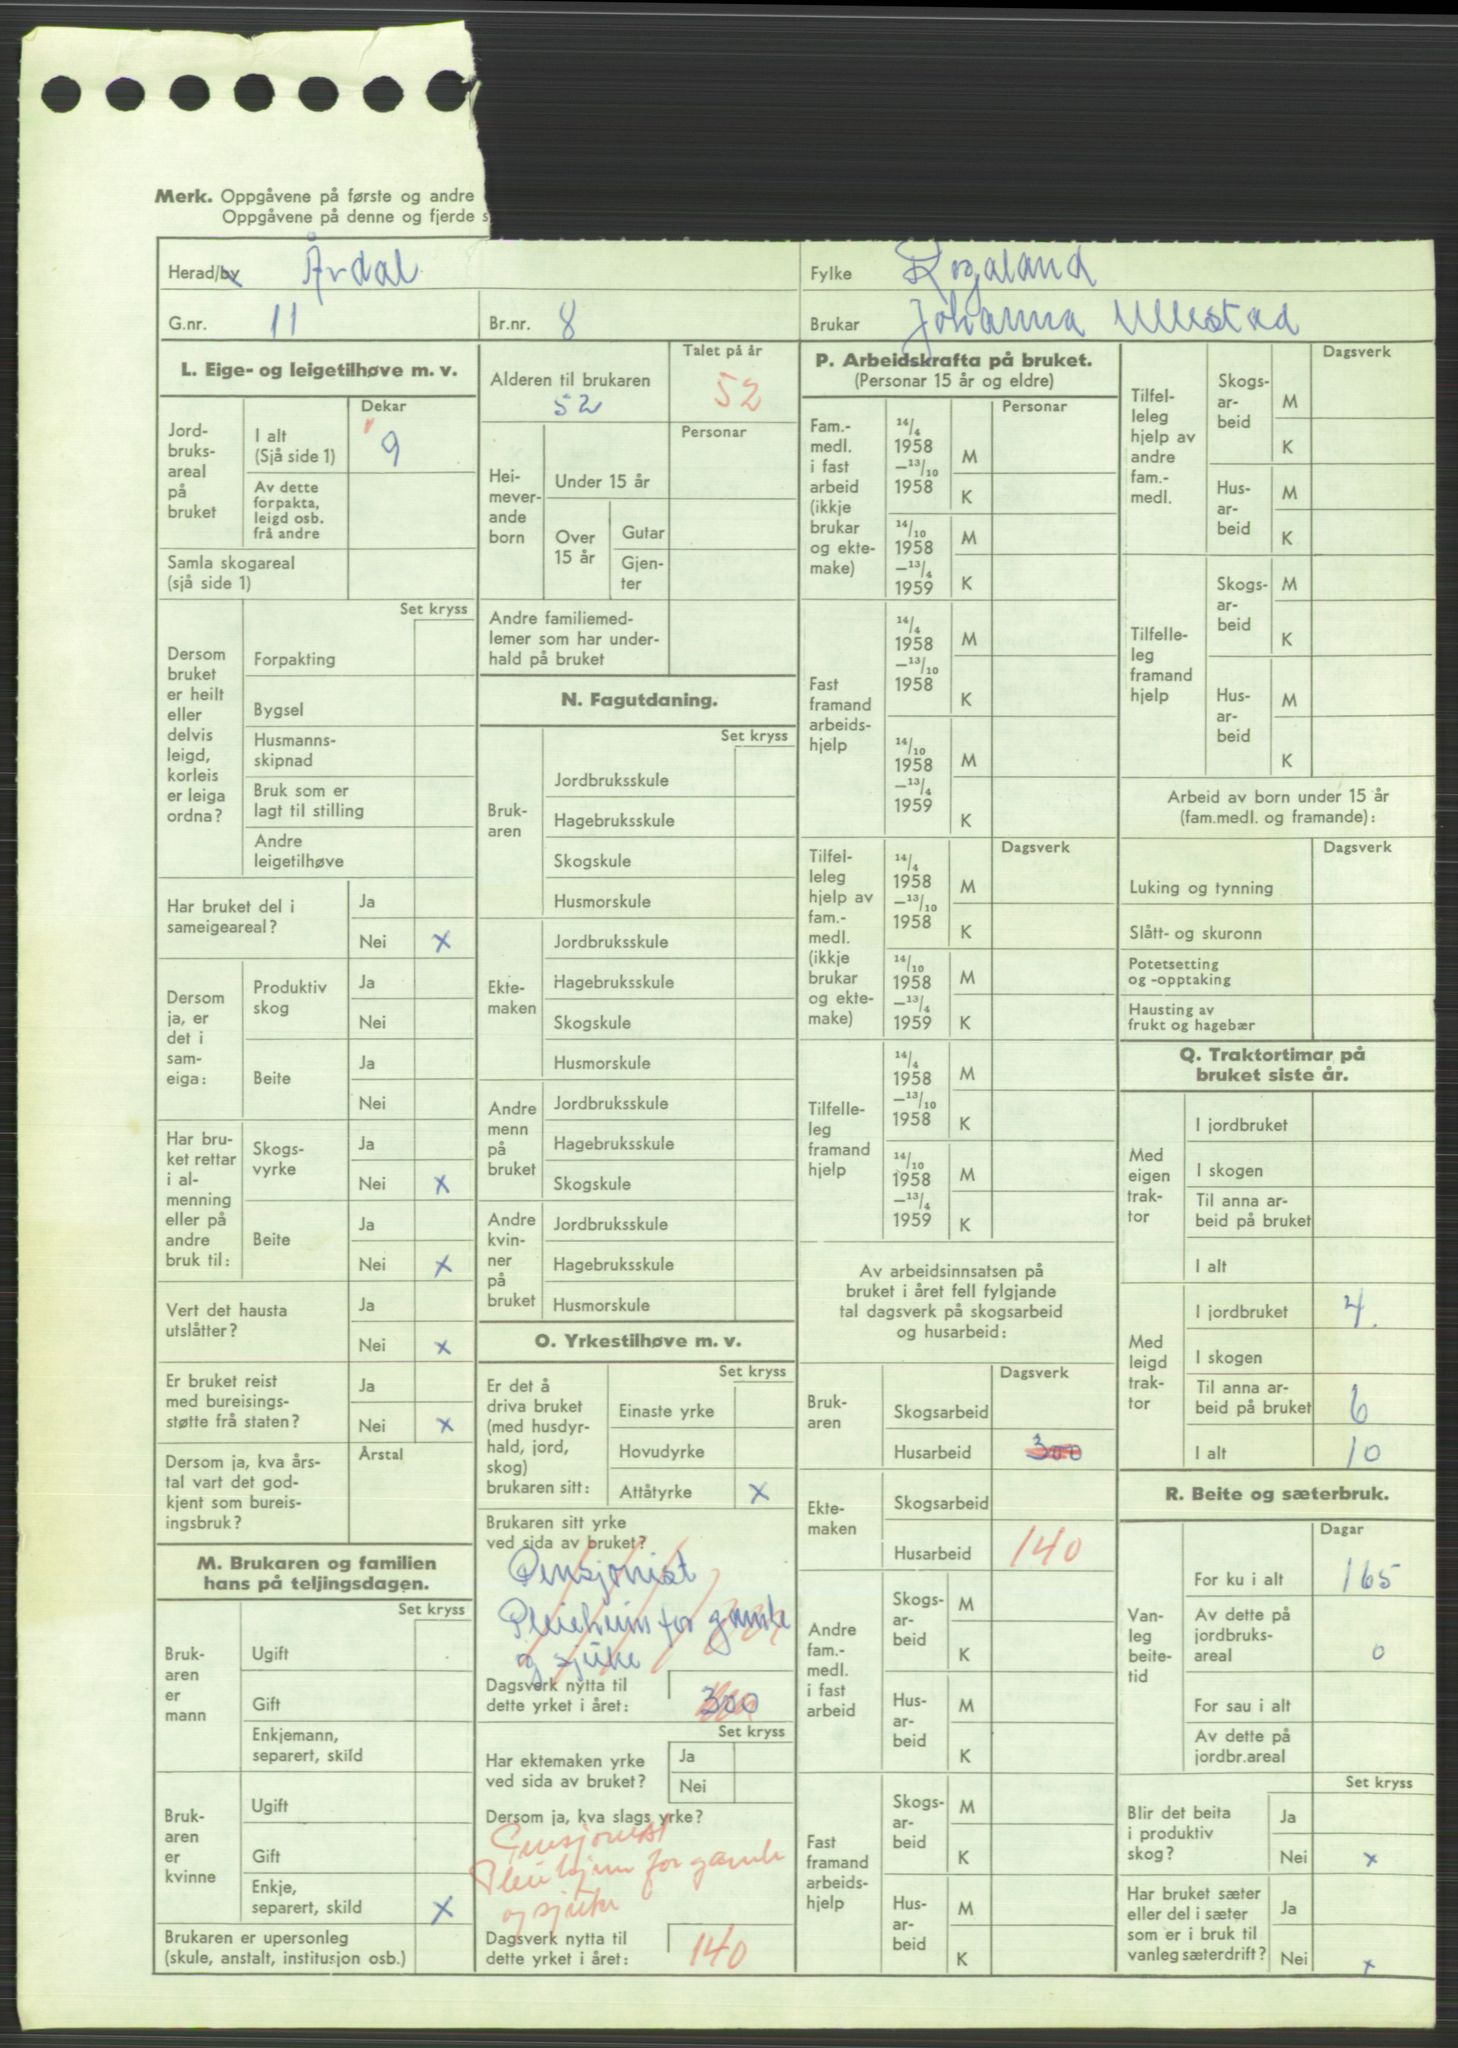 Merk. Oppgåvene på første og andre
Oppgåvene på denne og fjerde s
Herad/by Årdal
Fylke Rogaland
G.nr. 11
Br.nr. 8
Brukar Johanna Ullestad
L. Eige- og leigetilhøve m. v.
Dekar
Jord-
bruks-
areal
på
bruket
I alt
(Sjå side 1)
9
Av dette
forpakta,
leigd osb.
frå andre
Samla skogareal
(sjå side 1)
Set kryss
Dersom
bruket
er heilt
eller
delvis
leigd,
korleis
er leiga
ordna?
Forpakting
Bygsel
Husmanns-
skipnad
Bruk som er
lagt til stilling
Andre
leigetilhøve
Har bruket del i
sameigeareal?
Ja
Nei x
Dersom
ja, er
det i
sam-
eiga:
Produktiv
skog
Ja
Nei
Beite
Ja
Nei
Har bru-
ket rettar
i al-
menning
eller på
andre
bruk til:
Skogs-
vyrke
Ja
Nei x
Beite
Ja
Nei x
Vert det hausta
utslåtter?
Ja
Nei x
Er bruket reist
med bureisings-
støtte frå staten?
Ja
Nei x
Dersom ja, kva års-
tal vart det god-
kjent som bureis-
ingsbruk?
Årstal
M. Brukaren og familien
hans på teljingsdagen.
Set kryss
Bruk-
aren
er
mann
Ugift
Gift
Enkjemann,
separert, skild
Bruk-
aren
er
kvinne
Ugift
Gift
Enkje,
separert, skild x
Brukaren er upersonleg
(skule, anstalt, institusjon osb.)
Talet på år
Alderen til brukaren
52
52
Personar
Hei-
mever-
ande
born
Under 15 år
Over
15 år
Gutar
Gjen-
ter
Andre familiemed-
lemer som har under-
hald på bruket
N. Fagutdaning.
Set kryss
Bruk-
aren
Jordbruksskule
Hagebruksskule
Skogskule
Husmorskule
Ekte-
maken
Jordbruksskule
Hagebruksskule
Skogskule
Husmorskule
Andre
menn
på
bruket
Jordbruksskule
Hagebruksskule
Skogskule
Andre
kvin-
ner
på
bruket
Jordbruksskule
Hagebruksskule
Husmorskule
O. Yrkestilhøve m. v.
Set kryss
Er det å
driva bruket
(med husdyr-
hald, jord,
skog)
brukaren sitt:
Einaste yrke
Hovudyrke
Attåtyrke x
Brukaren sitt yrke
ved sida av bruket?
Pensjonist
Pleieheim for gamle
og sjuke
Dagsverk nytta til
dette yrket i året:
300
Set kryss
Har ektemaken yrke
ved sida av bruket?
Ja
Nei
Dersom ja, kva slags yrke?
Pensjonist
Pleiehjem for gamle
og sjuke
Dagsverk nytta til
dette yrket i året:
140
P. Arbeidskrafta på bruket.
(Personar 15 år og eldre)
Personar
Fam.-
medl.
i fast
arbeid
(ikkje
brukar
og ekte-
make)
14/4
1958
—13/10
1958
M
K
14/10
1958
—13/4
1959
M
K
Fast
framand
arbeids-
hjelp
14/4
1958
—13/10
1958
M
K
14/10
1958
—13/4
1959
M
K
Dagsverk
Tilfel-
leleg
hjelp av
fam.-
medl.
(ikkje
brukar
og ekte-
make)
14/4
1958
—13/10
1958
M
K
14/10
1958
—13/4
1959
M
K
Tilfelle-
leg
framand
hjelp
14/4
1958
—13/10
1958
M
K
14/10
1958
—13/4
1959
M
K
Av arbeidsinnsatsen på
bruket i året fell fylgjande
tal dagsverk på skogsarbeid
og husarbeid:
Dagsverk
Bruk-
aren
Skogsarbeid
Husarbeid 300
Ekte-
maken
Skogsarbeid
Husarbeid 140
Andre
fam.-
medl.
i fast
arbeid
Skogs-
ar-
beid
M
K
Hus-
ar-
beid
M
K
Fast
framand
arbeids-
hjelp
Skogs-
ar-
beid
M
K
Hus-
ar-
beid
M
K
Dagsverk
Tilfel-
leleg
hjelp av
andre
fam.-
medl.
Skogs-
ar-
beid
M
K
Hus-
ar-
beid
M
K
Tilfelle-
leg
framand
hjelp
Skogs-
ar-
beid
M
K
Hus-
ar-
beid
M
K
Arbeid av born under 15 år
(fam.medl. og framande):
Dagsverk
Luking og tynning
Slått- og skuronn
Potetsetting
og -opptaking
Hausting av
frukt og hagebær
Q. Traktortimar på
bruket siste år.
Med
eigen
trak-
tor
I jordbruket
I skogen
Til anna ar-
beid på bruket
I alt
Med
leigd
trak-
tor
I jordbruket 4.
I skogen
Til anna ar-
beid på bruket 6
I alt 10
R. Beite og sæterbruk.
Dagar
Van-
leg
beite-
tid
For ku i alt 165
Av dette på
jordbruks-
areal 0
For sau i alt
Av dette på
jordbr.areal
Set kryss
Blir det beita
i produktiv
skog?
Ja
Nei x
Har bruket sæter
eller del i sæter
som er i bruk til
vanleg sæterdrift?
Ja
Nei x